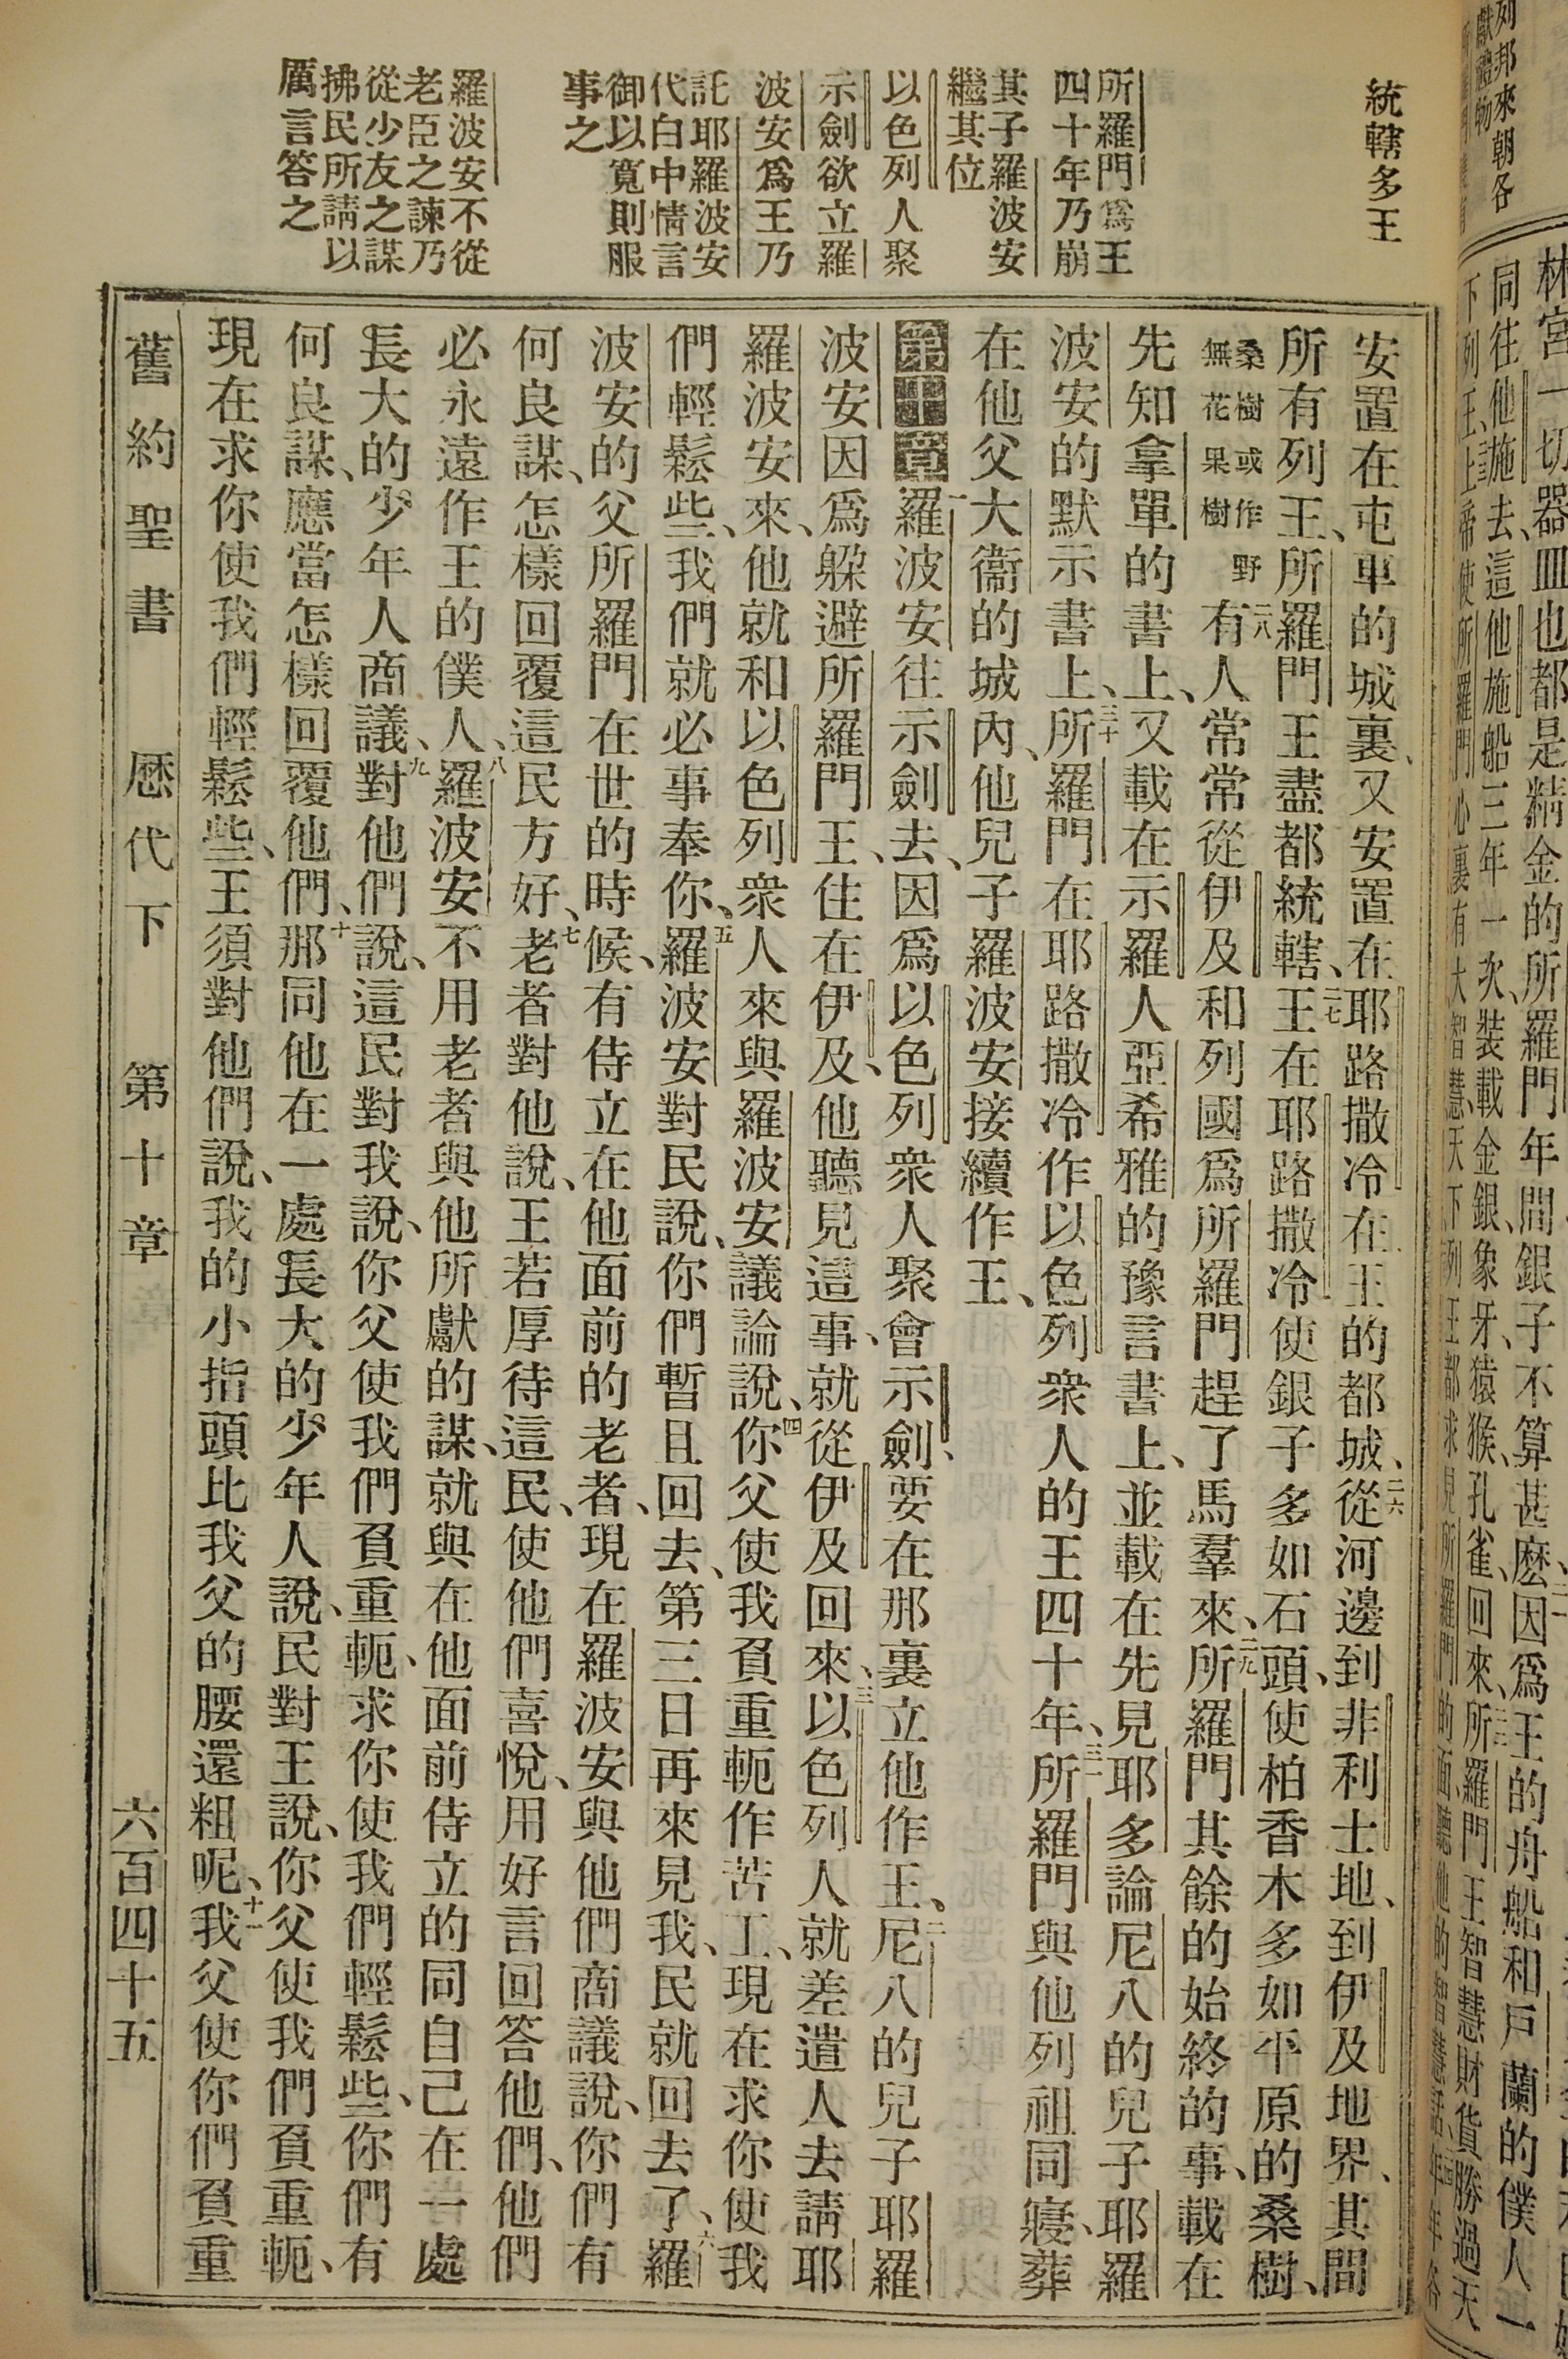 統轄多王
所羅門爲王
四十年乃崩
其子羅波安
繼其位
以色列人聚
示劍欲立羅
波安爲王乃
託耶羅波安
代白中情言
御以寬則服
事之
羅波安不從
老臣之諫乃
從少友之謀
拂民所請以
厲言答之
安置在屯車的城裏、又安置在耶路撒冷在王的都城、二六從河邊到非利士地、到伊及地界、其間
所有列王、所羅門王盡都統轄、二七王在耶路撒冷使銀子多如石頭、使柏香木多如平原的桑樹、
桑樹或作野無花果樹二八有人常常從伊及和列國爲所羅門趕了馬羣來、二九所羅門其餘的始終的事、載在
先知拿單的書上、又載在示羅人亞希雅的豫言書上、並載在先見耶多論尼八的兒子耶羅
波安的默示書上、三十所羅門在耶路撒冷作以色列衆人的王四十年、三一所羅門與他列祖同寢、葬
在他父大衞的城內、他兒子羅波安接續作王、
第十章一羅波安往示劍去、因爲以色列衆人聚會示劍、要在那裏立他作王、二尼八的兒子耶羅
波安因爲躱避所羅門王、住在伊及、他聽見這事、就從伊及回來、三以色列人就差遣人去請耶
羅波安來、他就和以色列衆人來與羅波安議論說、四你父使我負重軛作苦工、現在求你使我
們輕鬆些、我們就必事奉你、五羅波安對民說、你們暫且回去、第三日再來見我、民就回去了、六羅
波安的父所羅門在世的時候、有侍立在他面前的老者、現在羅波安與他們商議說、你們有
何良謀、怎樣回覆這民方好、七老者對他說、王若厚待這民、使他們喜悅、用好言回答他們、他們
必永遠作王的僕人、八羅波安不用老者與他所獻的謀、就與在他面前侍立的同自己在一處
長大的少年人商議、九對他們說、這民對我說、你父使我們負重軛、求你使我們輕鬆些、你們有
何良謀、應當怎樣回覆他們、十那同他在一處長大的少年人說、民對王說、你父使我們負重軛、
現在求你使我們輕鬆些、王須對他們說、我的小指頭比我父的腰還粗呢、十一我父使你們負重
舊約聖書 歷代下 第十章 六百四十五